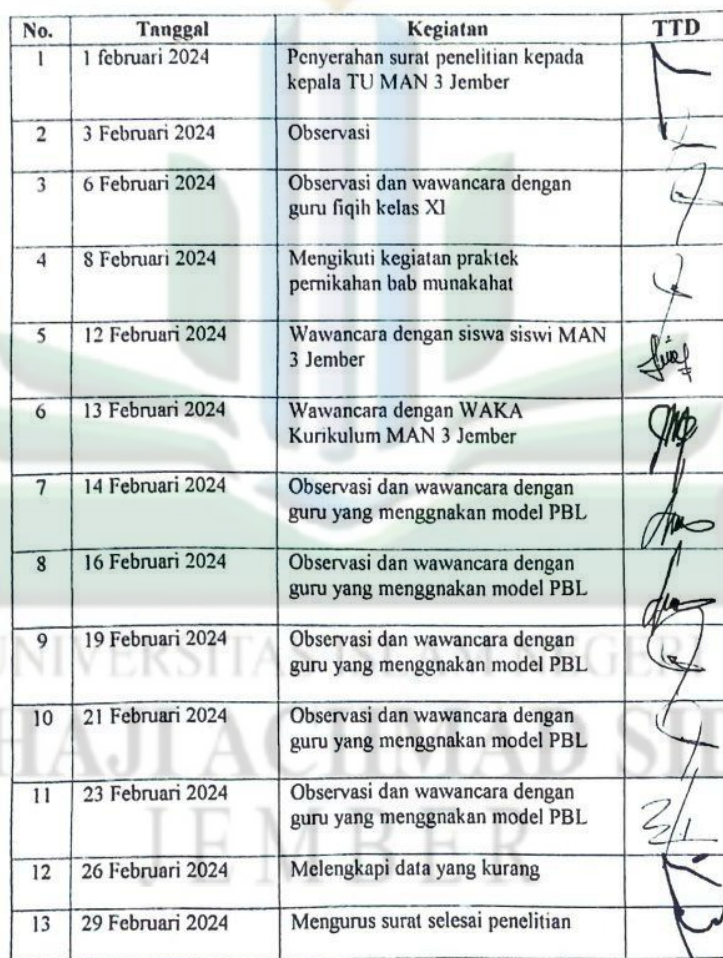 No. Tanggal Kegiatan TTD
1 1 februari 2024 Penyerahan surat penelitian kepada
kepala TU MAN 3 Jember
2 3 Februari 2024 Observasi
3 6 Februari 2024 Observasi dan wawancara dengan
guru fiqih kelas XI
4 8 Februari 2024 Mengikuti kegiatan praktek
pernikahan bab munakahat
5 12 Februari 2024 Wawancara dengan siswa siswi MAN
3 Jember
6 13 Februari 2024 Wawancara dengan WAKA
Kurikulum MAN 3 Jember
7 14 Februari 2024 Observasi dan wawancara dengan
guru yang menggnakan model PBL
8 16 Februari 2024 Observasi dan wawancara dengan
guru yang menggnakan model PBL
9 19 Februari 2024 Observasi dan wawancara dengan
guru yang menggnakan model PBL
10 21 Februari 2024 Observasi dan wawancara dengan
guru yang menggnakan model PBL
11 23 Februari 2024 Observasi dan wawancara dengan
guru yang menggnakan model PBL
12 26 Februari 2024 Melengkapi data yang kurang
13 29 Februari 2024 Mengurus surat selesai penelitian
UNIVERSITAS ISLAM NEGERI
HAJI ACHMAD SI
JEMBER